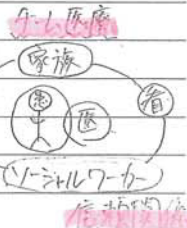 チーム医療
家族
患
医
看
ソーシャルワーカー